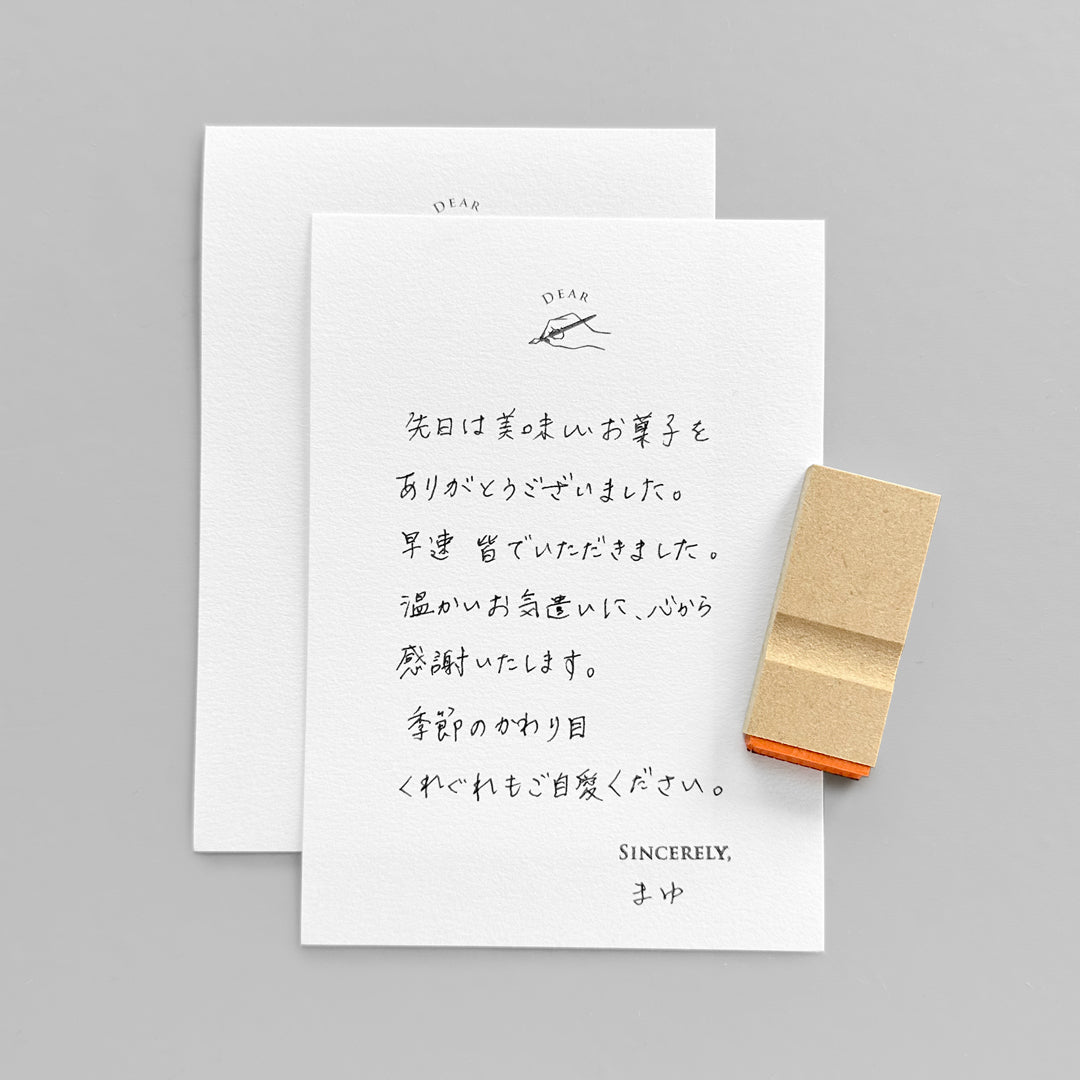 DEAR
DEAR
先日は美味しいお菓子を
ありがとうございました。
早速 皆でいただきました。
温かいお気遣いに、心から
感謝いたします。
季節のかわり目
くれぐれもご自愛ください。
SINCERELY,
まゆ